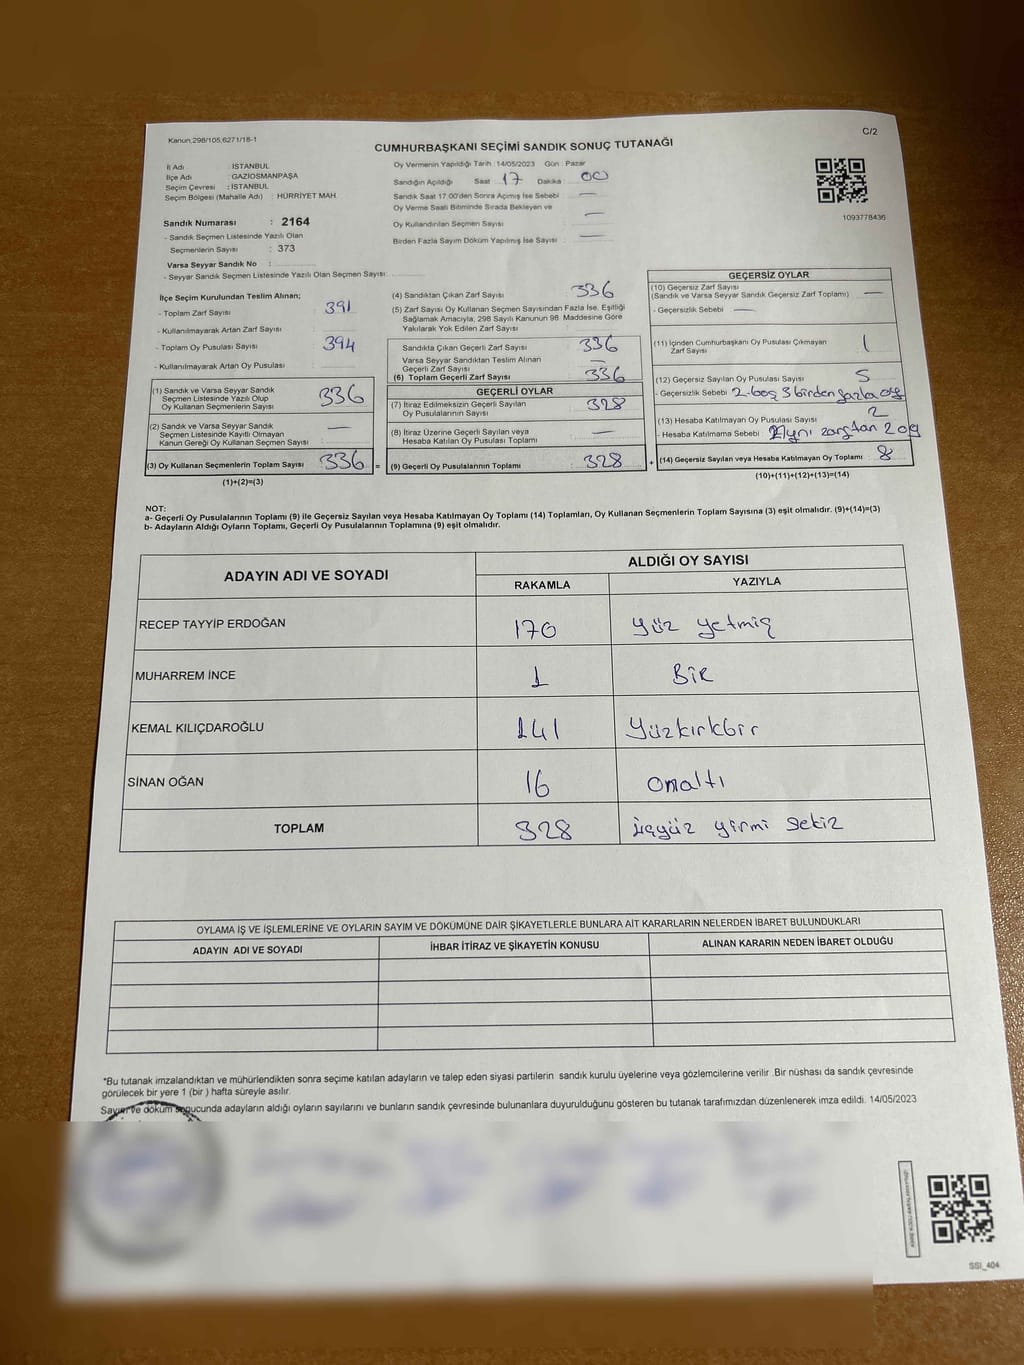 Kanun,298/105,6271/18-1
C/2
CUMHURBAŞKANI SEÇİMİ SANDIK SONUÇ TUTANAĞI
İl Adı : İSTANBUL
İlçe Adı : GAZİOSMANPAŞA
Seçim Çevresi : İSTANBUL
Seçim Bölgesi (Mahalle Adı) : HÜRRİYET MAH.
Sandık Numarası : 2164
- Sandık Seçmen Listesinde Yazılı Olan
Seçmenlerin Sayısı : 373
Varsa Seyyar Sandık No :
- Seyyar Sandık Seçmen Listesinde Yazılı Olan Seçmen Sayısı:
Oy Vermenin Yapıldığı Tarih : 14/05/2023 Gün : Pazar
Sandığın Açıldığı Saat : 17 Dakika : 00
Sandık Saat 17.00'den Sonra Açmış İse Sebebi : —
Oy Verme Saati Bitiminde Sırada Bekleyen ve
Oy Kullandırılan Seçmen Sayısı : —
Birden Fazla Sayım Döküm Yapılmış İse Sayısı : —
1093778436
İlçe Seçim Kurulundan Teslim Alınan;
- Toplam Zarf Sayısı : 391
- Kullanılmayarak Artan Zarf Sayısı :
- Toplam Oy Pusulası Sayısı : 394
- Kullanılmayarak Artan Oy Pusulası :
(1) Sandık ve Varsa Seyyar Sandık
Seçmen Listesinde Yazılı Olup
Oy Kullanan Seçmenlerin Sayısı : 336
(2) Sandık ve Varsa Seyyar Sandık
Seçmen Listesinde Kayıtlı Olmayan
Kanun Gereği Oy Kullanan Seçmen Sayısı : —
(3) Oy Kullanan Seçmenlerin Toplam Sayısı : 336 =
(1)+(2)=(3)
(4) Sandıktan Çıkan Zarf Sayısı : 336
(5) Zarf Sayısı Oy Kullanan Seçmen Sayısından Fazla İse, Eşitliği
Sağlamak Amacıyla, 298 Sayılı Kanunun 98. Maddesine Göre
Yakılarak Yok Edilen Zarf Sayısı
Sandıkta Çıkan Geçerli Zarf Sayısı : 336
Varsa Seyyar Sandıktan Teslim Alınan
Geçerli Zarf Sayısı : —
(6) Toplam Geçerli Zarf Sayısı : 336
GEÇERLİ OYLAR
(7) İtiraz Edilmeksizin Geçerli Sayılan
Oy Pusulalarının Sayısı : 328
(8) İtiraz Üzerine Geçerli Sayılan veya
Hesaba Katılan Oy Pusulası Toplamı : —
(9) Geçerli Oy Pusulalarının Toplamı : 328 +
GEÇERSİZ OYLAR
(10) Geçersiz Zarf Sayısı
(Sandık ve Varsa Seyyar Sandık Geçersiz Zarf Toplamı) : —
- Geçersizlik Sebebi : —
(11) İçinden Cumhurbaşkanı Oy Pusulası Çıkmayan
Zarf Sayısı : 1
(12) Geçersiz Sayılan Oy Pusulası Sayısı : 5
- Geçersizlik Sebebi : 2-boş 3 birden fazla oy
(13) Hesaba Katılmayan Oy Pusulası Sayısı : 2
- Hesaba Katılmama Sebebi : Aynı zarftan 2 oy
(14) Geçersiz Sayılan veya Hesaba Katılmayan Oy Toplamı : 8
(10)+(11)+(12)+(13)=(14)
NOT:
a- Geçerli Oy Pusulalarının Toplamı (9) ile Geçersiz Sayılan veya Hesaba Katılmayan Oy Toplamı (14) Toplamları, Oy Kullanan Seçmenlerin Toplam Sayısına (3) eşit olmalıdır. (9)+(14)=(3)
b- Adayların Aldığı Oyların Toplamı, Geçerli Oy Pusulalarının Toplamına (9) eşit olmalıdır.
ADAYIN ADI VE SOYADI ALDIĞI OY SAYISI
RAKAMLA YAZIYLA
RECEP TAYYİP ERDOĞAN 170 yüz yetmiş
MUHARREM İNCE 1 Bir
KEMAL KILIÇDAROĞLU 141 Yüzkırkbir
SİNAN OĞAN 16 onaltı
TOPLAM 328 üçyüz yirmi sekiz
OYLAMA İŞ VE İŞLEMLERİNE VE OYLARIN SAYIM VE DÖKÜMÜNE DAİR ŞİKAYETLERLE BUNLARA AİT KARARLARIN NELERDEN İBARET BULUNDUKLARI
ADAYIN ADI VE SOYADI İHBAR İTİRAZ VE ŞİKAYETİN KONUSU ALINAN KARARIN NEDEN İBARET OLDUĞU
*Bu tutanak imzalandıktan ve mühürlendikten sonra seçime katılan adayların ve talep eden siyasi partilerin sandık kurulu üyelerine veya gözlemcilerine verilir .Bir nüshası da sandık çevresinde
görülecek bir yere 1 (bir ) hafta süreyle asılır.
Sayım ve döküm sonucunda adayların aldığı oyların sayılarını ve bunların sandık çevresinde bulunanlara duyurulduğunu gösteren bu tutanak tarafımızdan düzenlenerek imza edildi. 14/05/2023
SSI_404